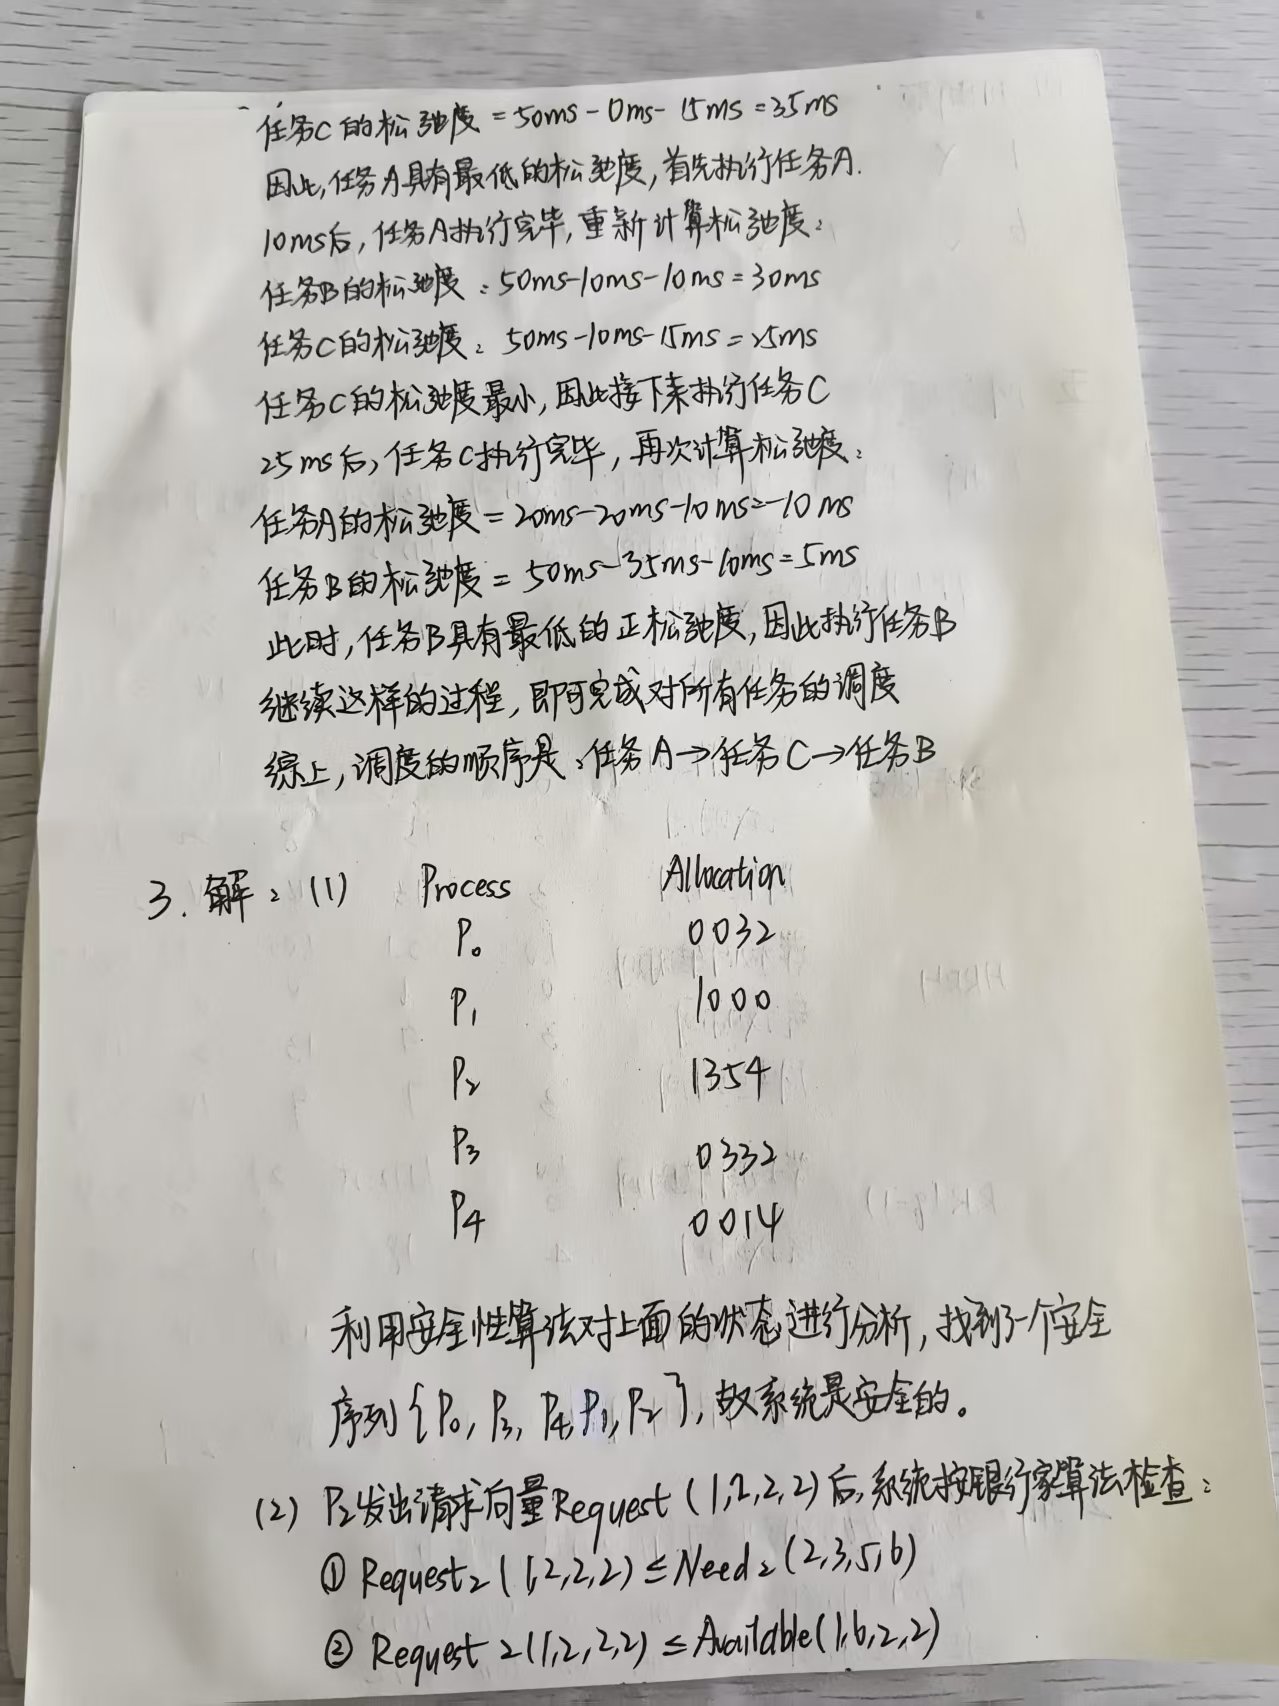 任务C的松弛度=50ms-0ms-15ms=35ms
因此,任务A具有最低的松弛度,首先执行任务A.
10ms后,任务A执行完毕,重新计算松弛度:
任务B的松弛度:50ms-10ms-10ms=30ms
任务C的松弛度:50ms-10ms-15ms=25ms
任务C的松弛度最小,因此接下来执行任务C
25ms后,任务C执行完毕,再次计算松弛度:
任务A的松弛度=20ms-20ms-10ms=-10ms
任务B的松弛度=50ms-35ms-10ms=5ms
此时,任务B具有最低的正松弛度,因此执行任务B
继续这样的过程,即可完成对所有任务的调度
综上,调度的顺序是:任务A→任务C→任务B
3.解:(1) Process Allocation
P0 0032
P1 1000
P2 1354
P3 0332
P4 0014
利用安全性算法对上面的状态进行分析,找到了一个安全
序列{P0,P3,P4,P1,P2},故系统是安全的。
(2) P2发出请求向量Request(1,2,2,2)后,系统按银行家算法检查:
① Request2(1,2,2,2)≤Need2(2,3,5,6)
② Request2(1,2,2,2)≤Available(1,6,2,2)